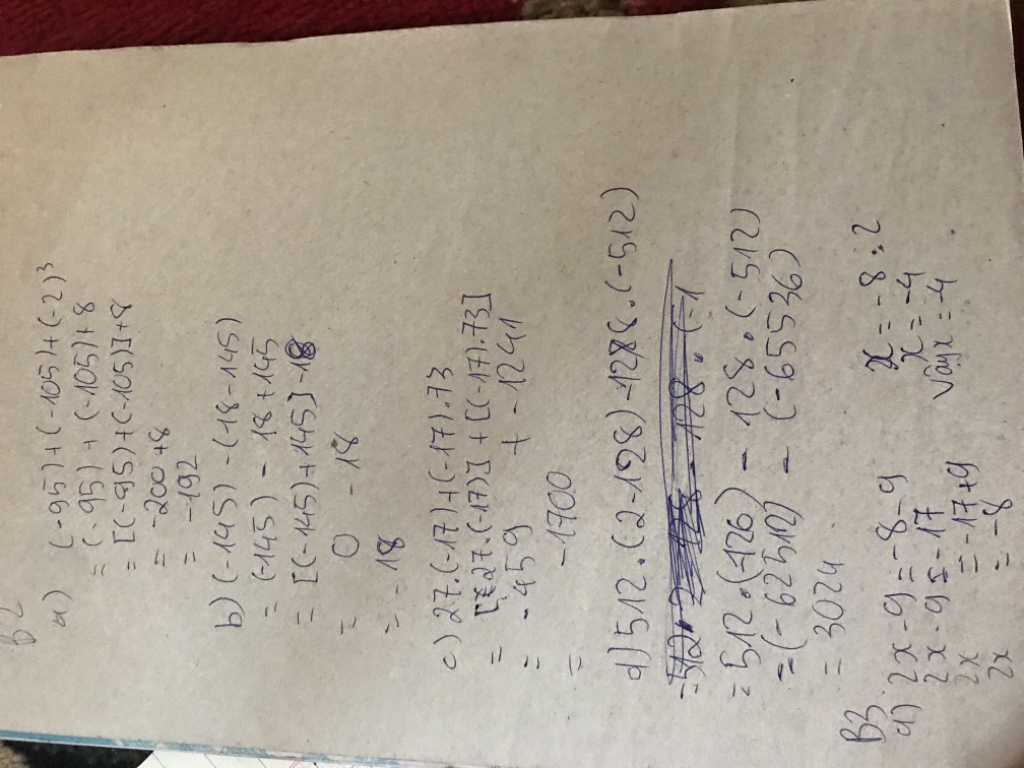 B2
a) (-95)+(-105)+(-2)³
= (-95)+(-105)+8
= [(-95)+(-105)]+8
= -200+8
= -192
b) (-145)-(18-145)
= (-145)-18+145
= [(-145)+145]-18
= 0 -18
= -18
c) 27.(-17)+(-17).73
= [27.(-17)]+[(-17).73]
= -459 + -1241
= -1700
d) 512.(2-128)-128.(-512)
= 512.(-126)-128.(-512)
= (-62512)-(-65536)
= 3024
B3
a) 2x-9=-8-9
2x-9=-17
2x =-17+9
2x =-8
x=-8:2
x=-4
Vậy x=-4